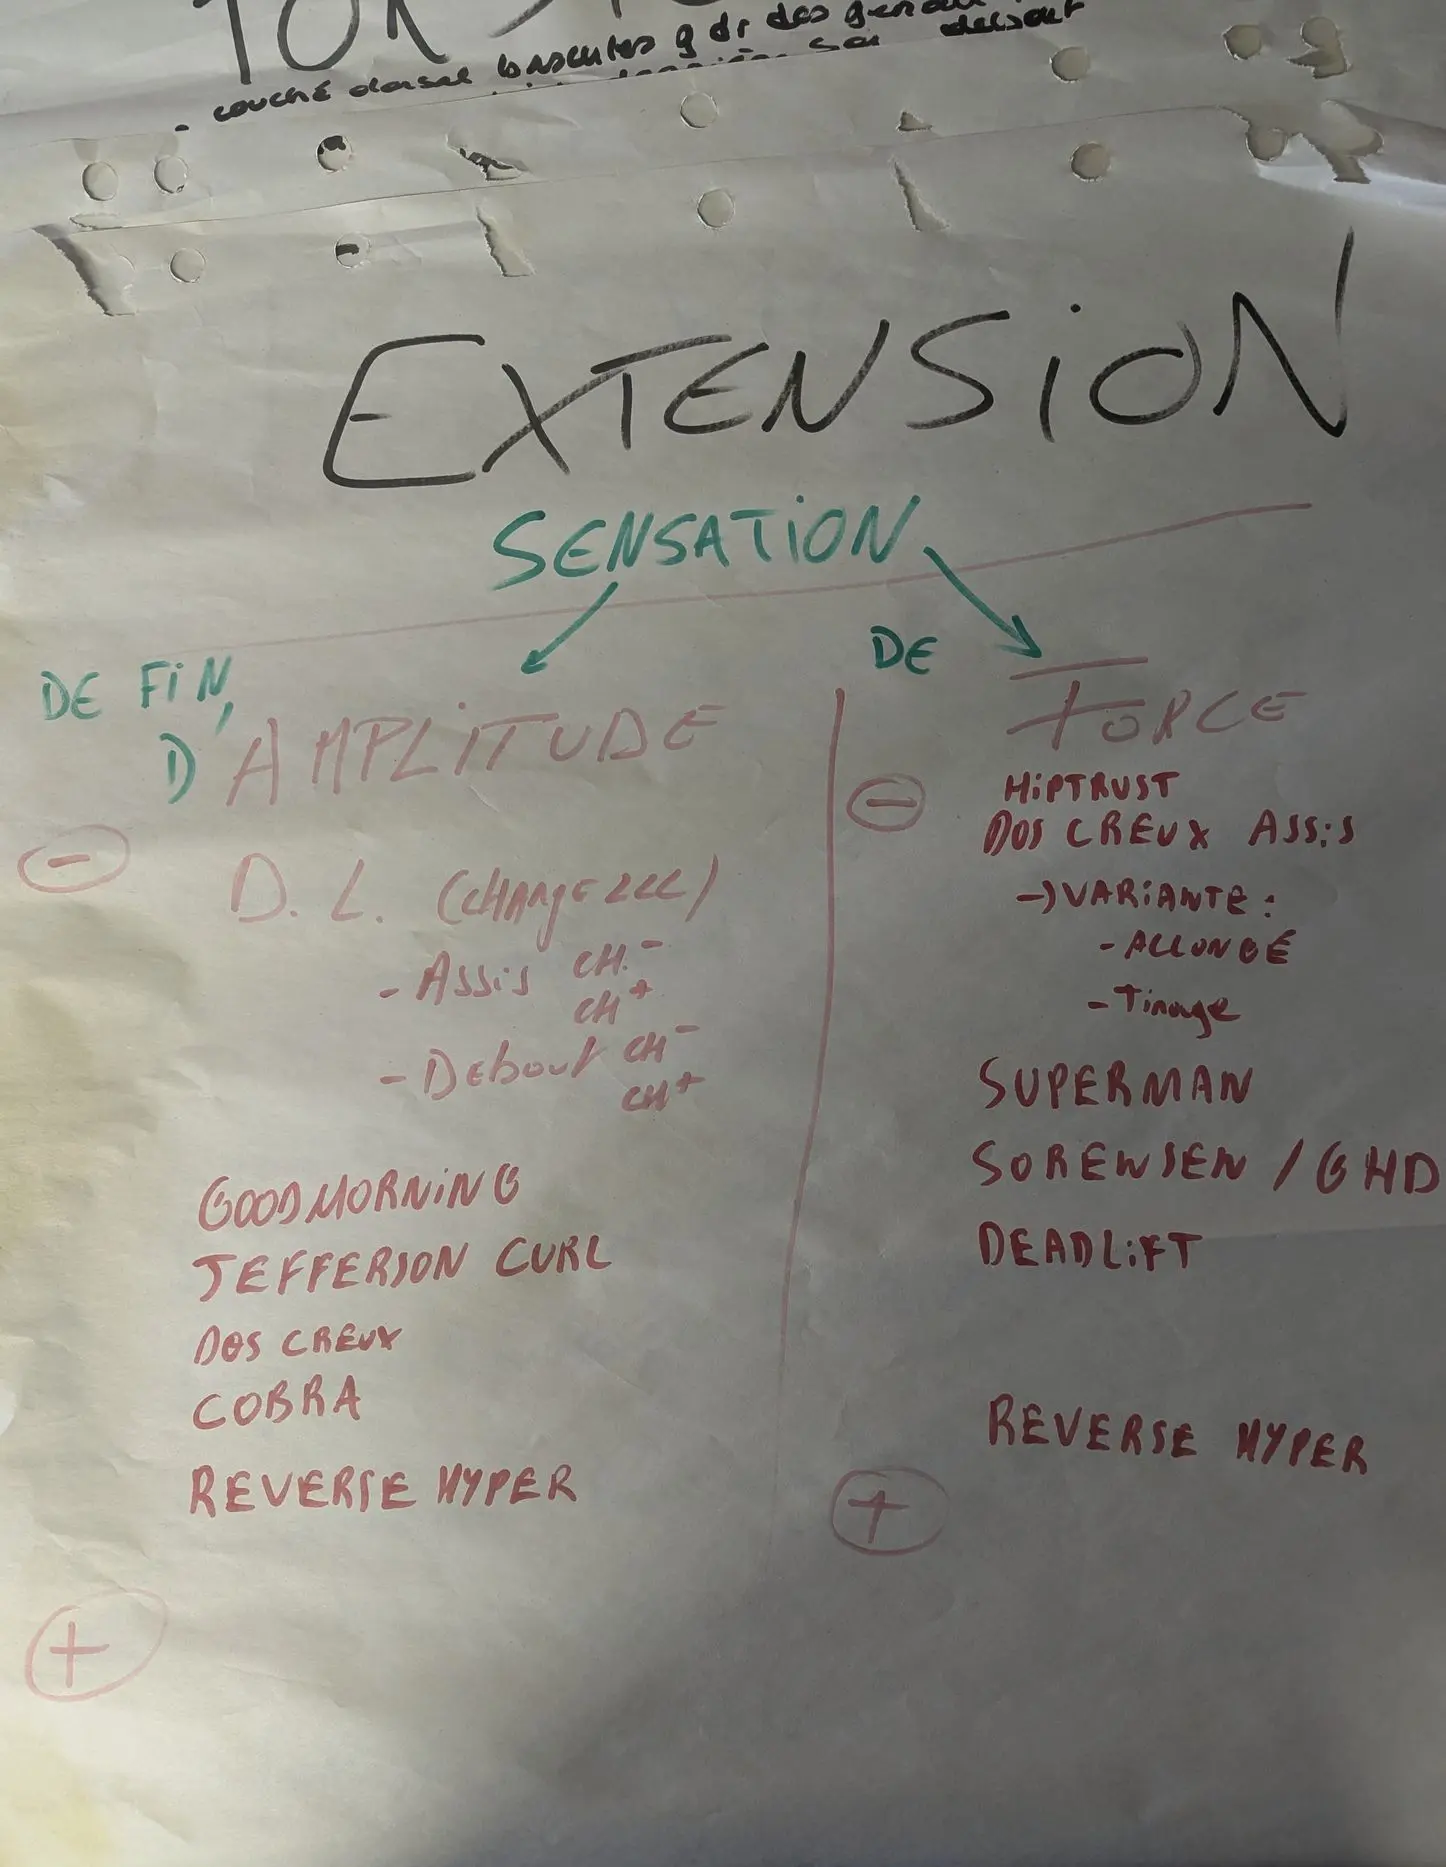 - couché dorsal bascules g dr des genoux
EXTENSiON
SENSATiON
DE FiN,
D'AMPLiTUDE
-
D. L. (CHANGE LLL)
- Assis CH.-
CH+
- Debout CH-
CH+
GOODMORNiNG
JEFFERSON CURL
DOS CREUX
COBRA
REVERSE HYPER
+
DE
FORCE
-
HiPTRUST
DOS CREUX ASSiS
-> VARiANTE :
- ALLONGÉ
- Tirage
SUPERMAN
SORENSEN / GHD
DEADLiFT
REVERSE HYPER
+